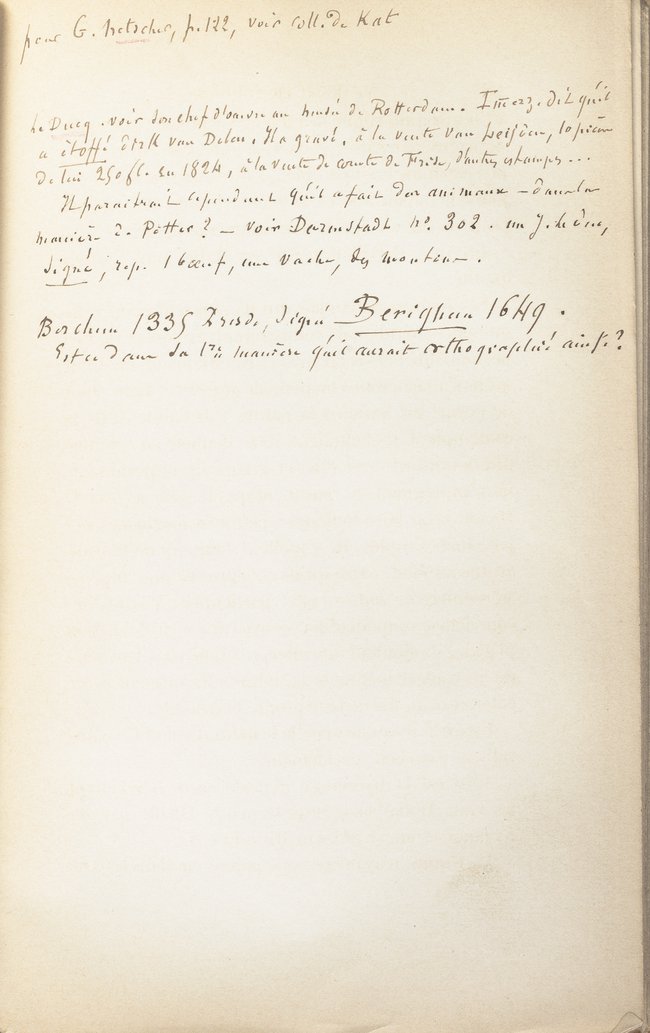 pour G. Netscher, p. 122, voir coll. de Kat
Le Ducq. voir son chef d'œuvre au musée de Rotterdam. Immerz. dit qu'il
a étoffé Dirk van Delen. Il a gravé, à la vente van Leijden, 10 pièces
de lui 250 fl. en 1824, à la vente du comte de Fries, d'autres estampes...
Il paraitrait cependant qu'il a fait des animaux – dans la
manière de Potter? – voir Darmstadt no. 302. un J. le Duc,
signé, rep. 1 bœuf, une vache, des moutons.
Berchem 1335 Dresde, signé Berighem 1649.
Est ce dans sa 1re manière qu'il aurait orthographié ainsi?